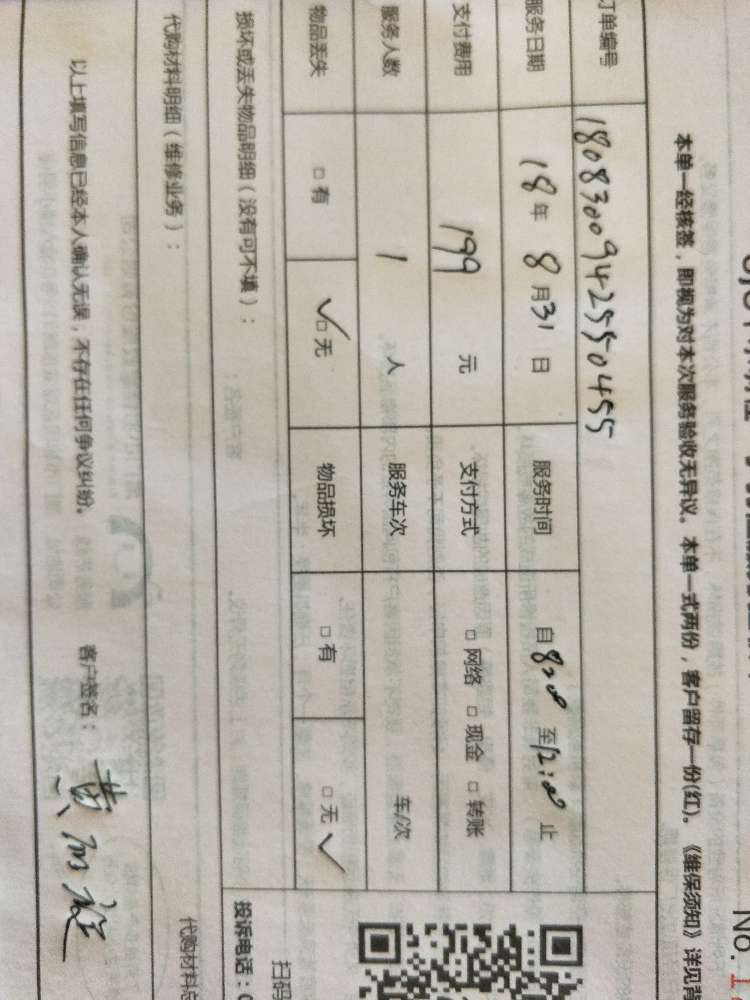 No. 1
本单一经核签，即视为对本次服务验收无异议。本单一式两份，客户留存一份(红)。《维保须知》详见背
订单编号 180830094255 0455
服务日期 18年 8月31日 服务时间 自8:00 至12:00 止
支付费用 199 元 支付方式 □ 网络 □ 现金 □ 转账
服务人数 1 人 服务车次 车/次
物品丢失 □ 有 ✓□ 无 物品损坏 □ 有 □ 无 ✓
损坏或丢失物品明细（没有可不填）：
扫码
投诉电话：0
代购材料明细（维修业务）：
代购材料总
以上填写信息已经本人确认无误，不存在任何争议纠纷。 客户签名：